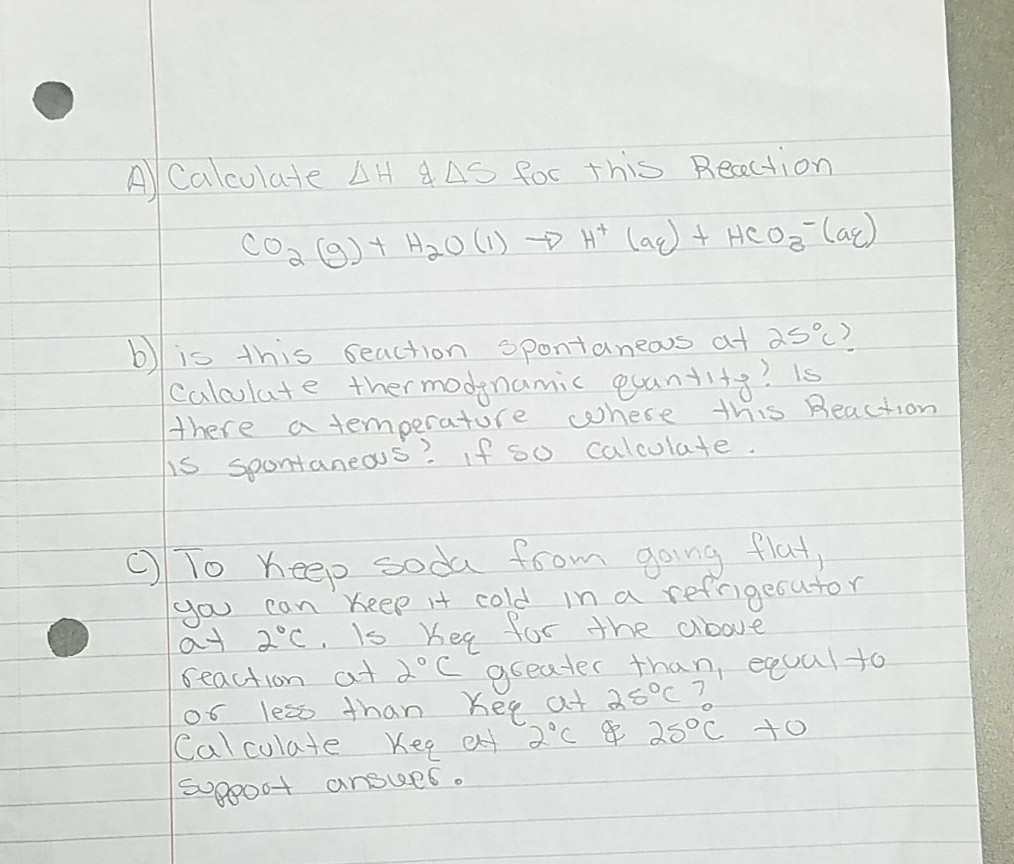 A) Calculate ΔH & ΔS for this Reaction
CO₂ (g) + H₂O (l) → H⁺ (aq) + HCO₃⁻ (aq)
b) is this reaction spontaneous at 25°C?
Calculate thermodynamic quantity? Is
there a temperature where this Reaction
is spontaneous? if so calculate.
C) To Keep soda from going flat,
you can Keep it cold in a refrigerator
at 2°C. Is Keq for the above
reaction at 2°C greater than, equal to
or less than Keq at 25°C?
Calculate Keq at 2°C & 25°C to
support answer.